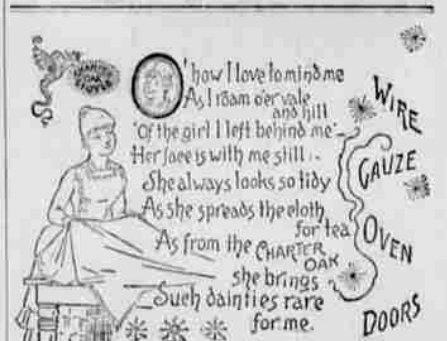 CHARTER
OAK
STOVES
O' how I love to mind me
As I roam o'er vale
and hill
"Of the girl I left behind me"-
Her face is with me still:-
She always looks so tidy
As she spreads the cloth
for tea
As from the CHARTER
OAK
she brings
Such dainties rare
for me.
WIRE
GAUZE
OVEN
DOORS